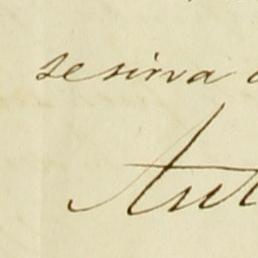 se sirva
Aut